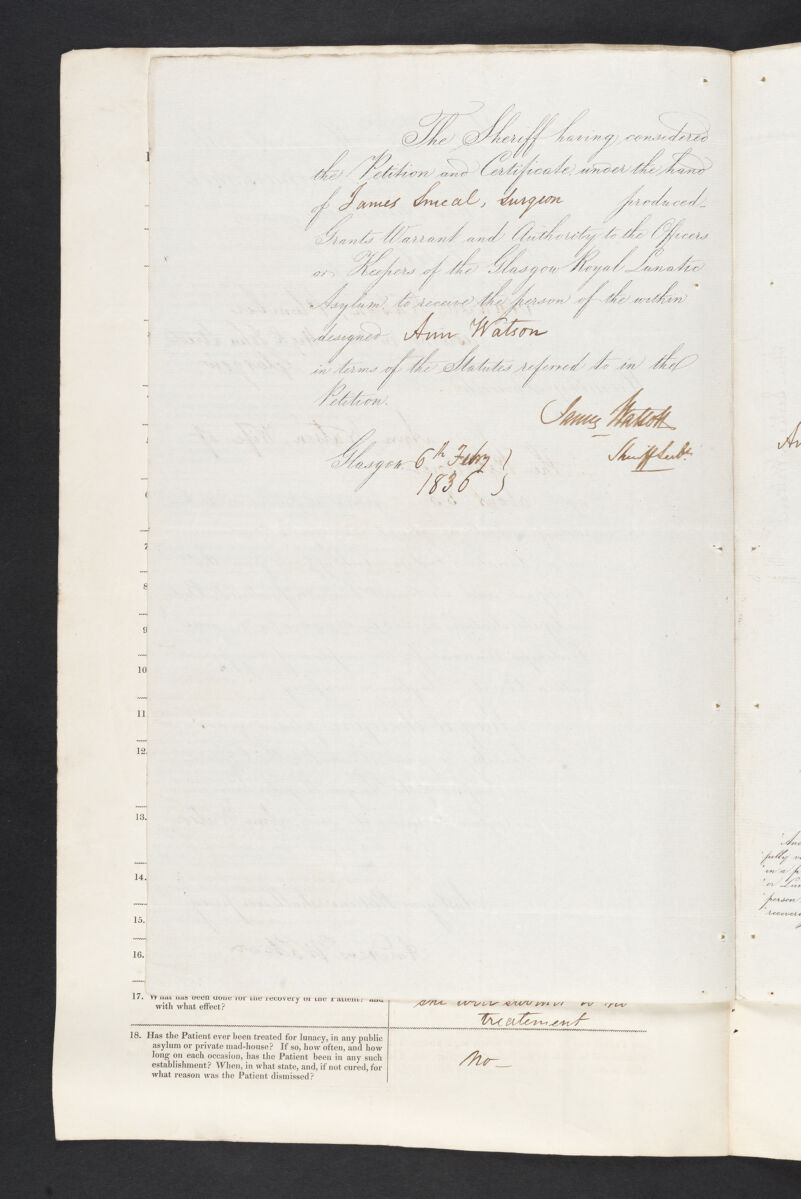 The Sheriff having considered
the Petition and Certificate under the hand
of James Smeal, Surgeon produced
Grants Warrant and Authority to the Officers
or Keepers of the Glasgow Royal Lunatic
Asylum to receive the person of the within
designed Ann Watson
in terms of the Statutes referred to in the
Petition.
James Watson
Sheriff Subt.
Glasgow 6th Feby
1836
7
8
9
10
11
12.
13.
14.
15.
16.
17. What has been done for the recovery of the Patient? and
with what effect?
she will submit to no
treatement
18. Has the Patient ever been treated for lunacy, in any public
asylum or private mad-house? If so, how often, and how
long on each occasion, has the Patient been in any such
establishment? When, in what state, and, if not cured, for
what reason was the Patient dismissed?
No—
in a
person